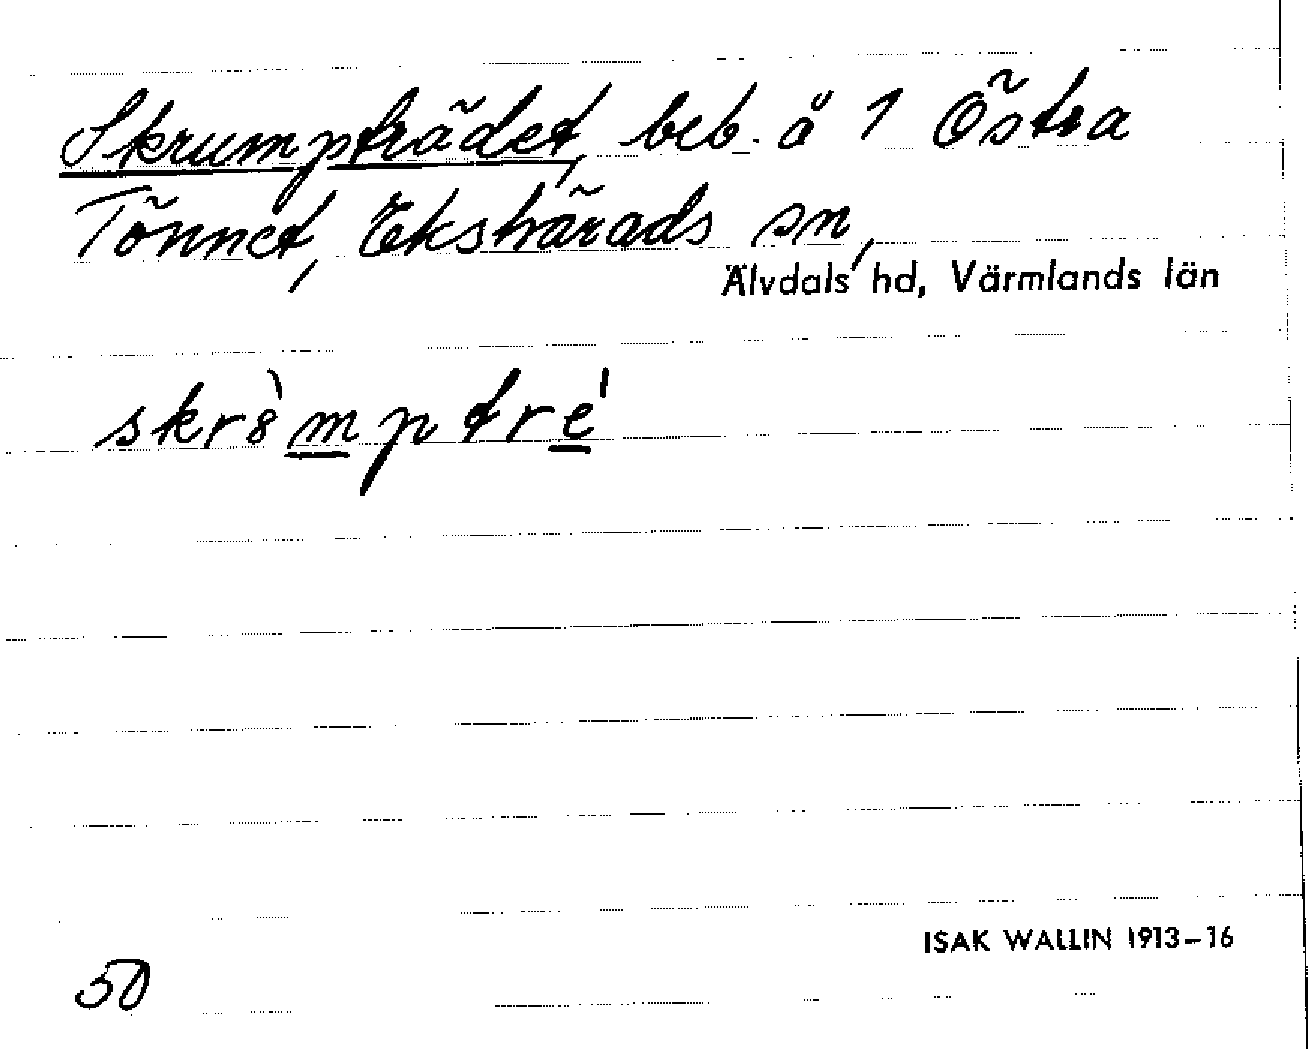 Skrumpträdet, beb. å 1 Östra
Tönnet, Ekshärads sn,
Älvdals hd, Värmlands län
skr8̀mptré
50
ISAK WALLIN 1913–16